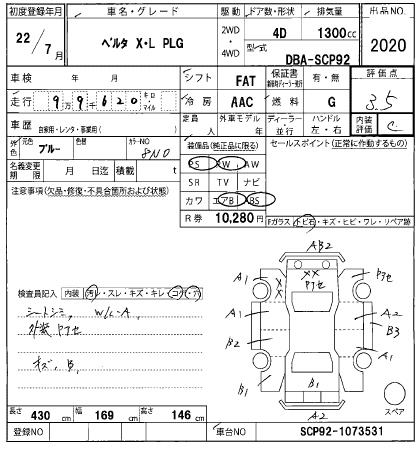 初度登録年月 車名・グレード 駆動 ドア数・形状 排気量 出品NO
22/7月 ベルタ X・L PLG 2WD・4WD 4D 1300cc 2020
型式 DBA-SCP92
車検 年 月 シフト FAT 保証書 有・無 評価点
走行 9万9千620 キロ・マイル 冷房 AAC 燃料 G 3.5
車歴 自家用・レンタ・事業用( ) 定員 人 外車モデル 年 ディーラー・並行 ハンドル 左・右 内装評価 C
外色 元色 ブルー 色替 カラーNO 8N0 装備品(純正品に限る) セールスポイント(正常に動作するもの)
名義変更期限 月 日迄 積載 t PS PW AW
注意事項(欠品・修復・不具合箇所および状態) SR TV ナビ
カワ エアB ABS
R券 10,280円 Fガラス トビ石・キズ・ヒビ・ワレ・リペア跡
AB2
A1 XX アワセ アワセ
検査員記入 内装 汚レ・スレ・キズ・キレ・コゲ・穴
シートシミ, W/C-A,
外装 アワセ
キズ, B,
A1 A2
B2 B3
A1
B1 B1
A2
スペア
長さ 430 cm 幅 169 cm 高さ 146 cm
登録NO 車台NO SCP92-1073531